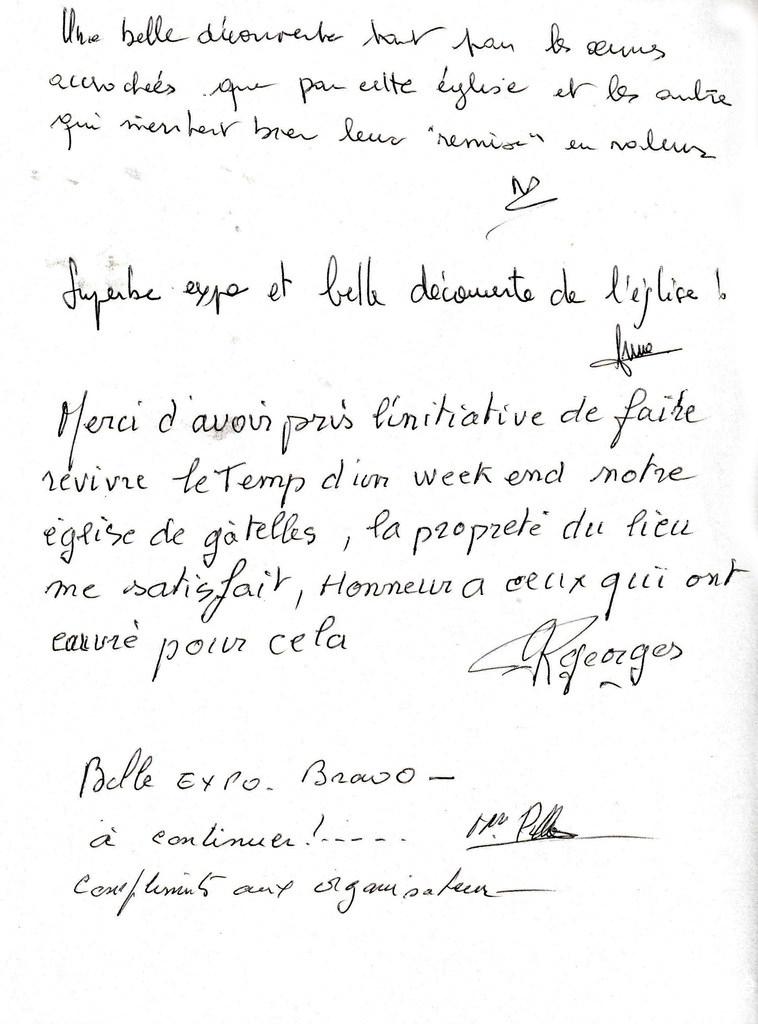 Une belle découverte tant par les œuvres
accrochées que par cette église et les autres
qui méritent bien leur "remise" en valeur
Superbe expo et belle découverte de l'église !
Anne
Merci d'avoir pris l'initiative de faire
revivre le Temp d'un week end notre
église de gâtelles, la propreté du lieu
me satisfait, Honneur a ceux qui ont
œuvré pour cela
georges
Belle EXPO. Bravo –
à continuer !-----
Compliments aux organisateurs